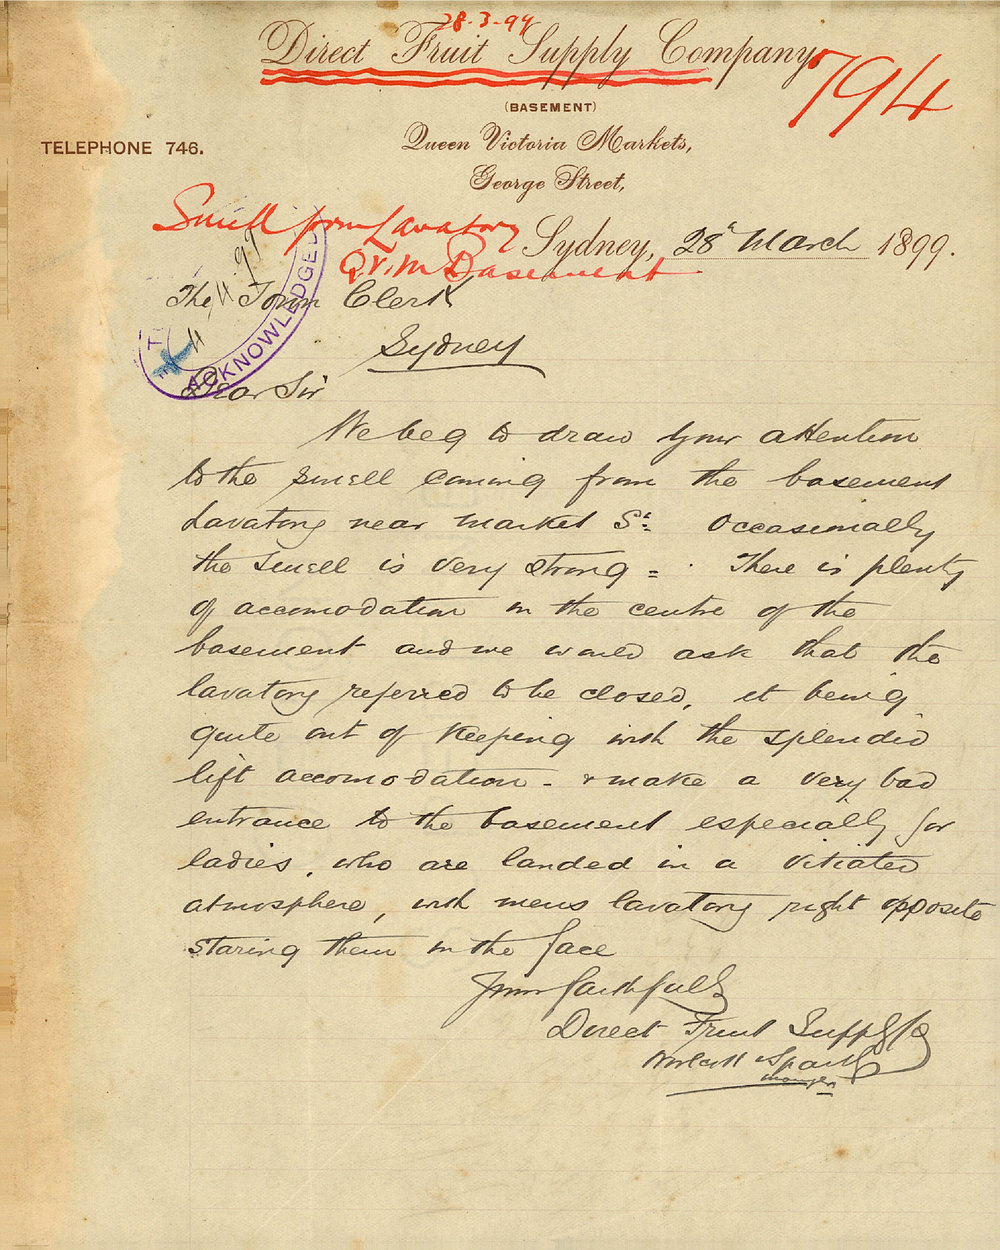 28.3.99
Direct Fruit Supply Company.
794
(BASEMENT)
Queen Victoria Markets,
TELEPHONE 746.
George Street,
Smell from Lavatory
Sydney, 28th March 1899.
Q.V.M Basement
The Town Clerk
ACKNOWLEDGED
Sydney
Dear Sir
We beg to draw your attention
to the smell coming from the basement
Lavatory near Market St: Occasionally
the smell is very strong = . There is plenty
of accomodation in the centre of the
basement and we would ask that the
lavatory referred to be closed, it being
quite out of keeping with the splendid
lift accomodation - & make a very bad
entrance to the basement especially for
ladies, who are landed in a vitiated
atmosphere, with mens lavatory right opposite
staring them in the face
Yours faithfully
Direct Fruit Supply Co
manager